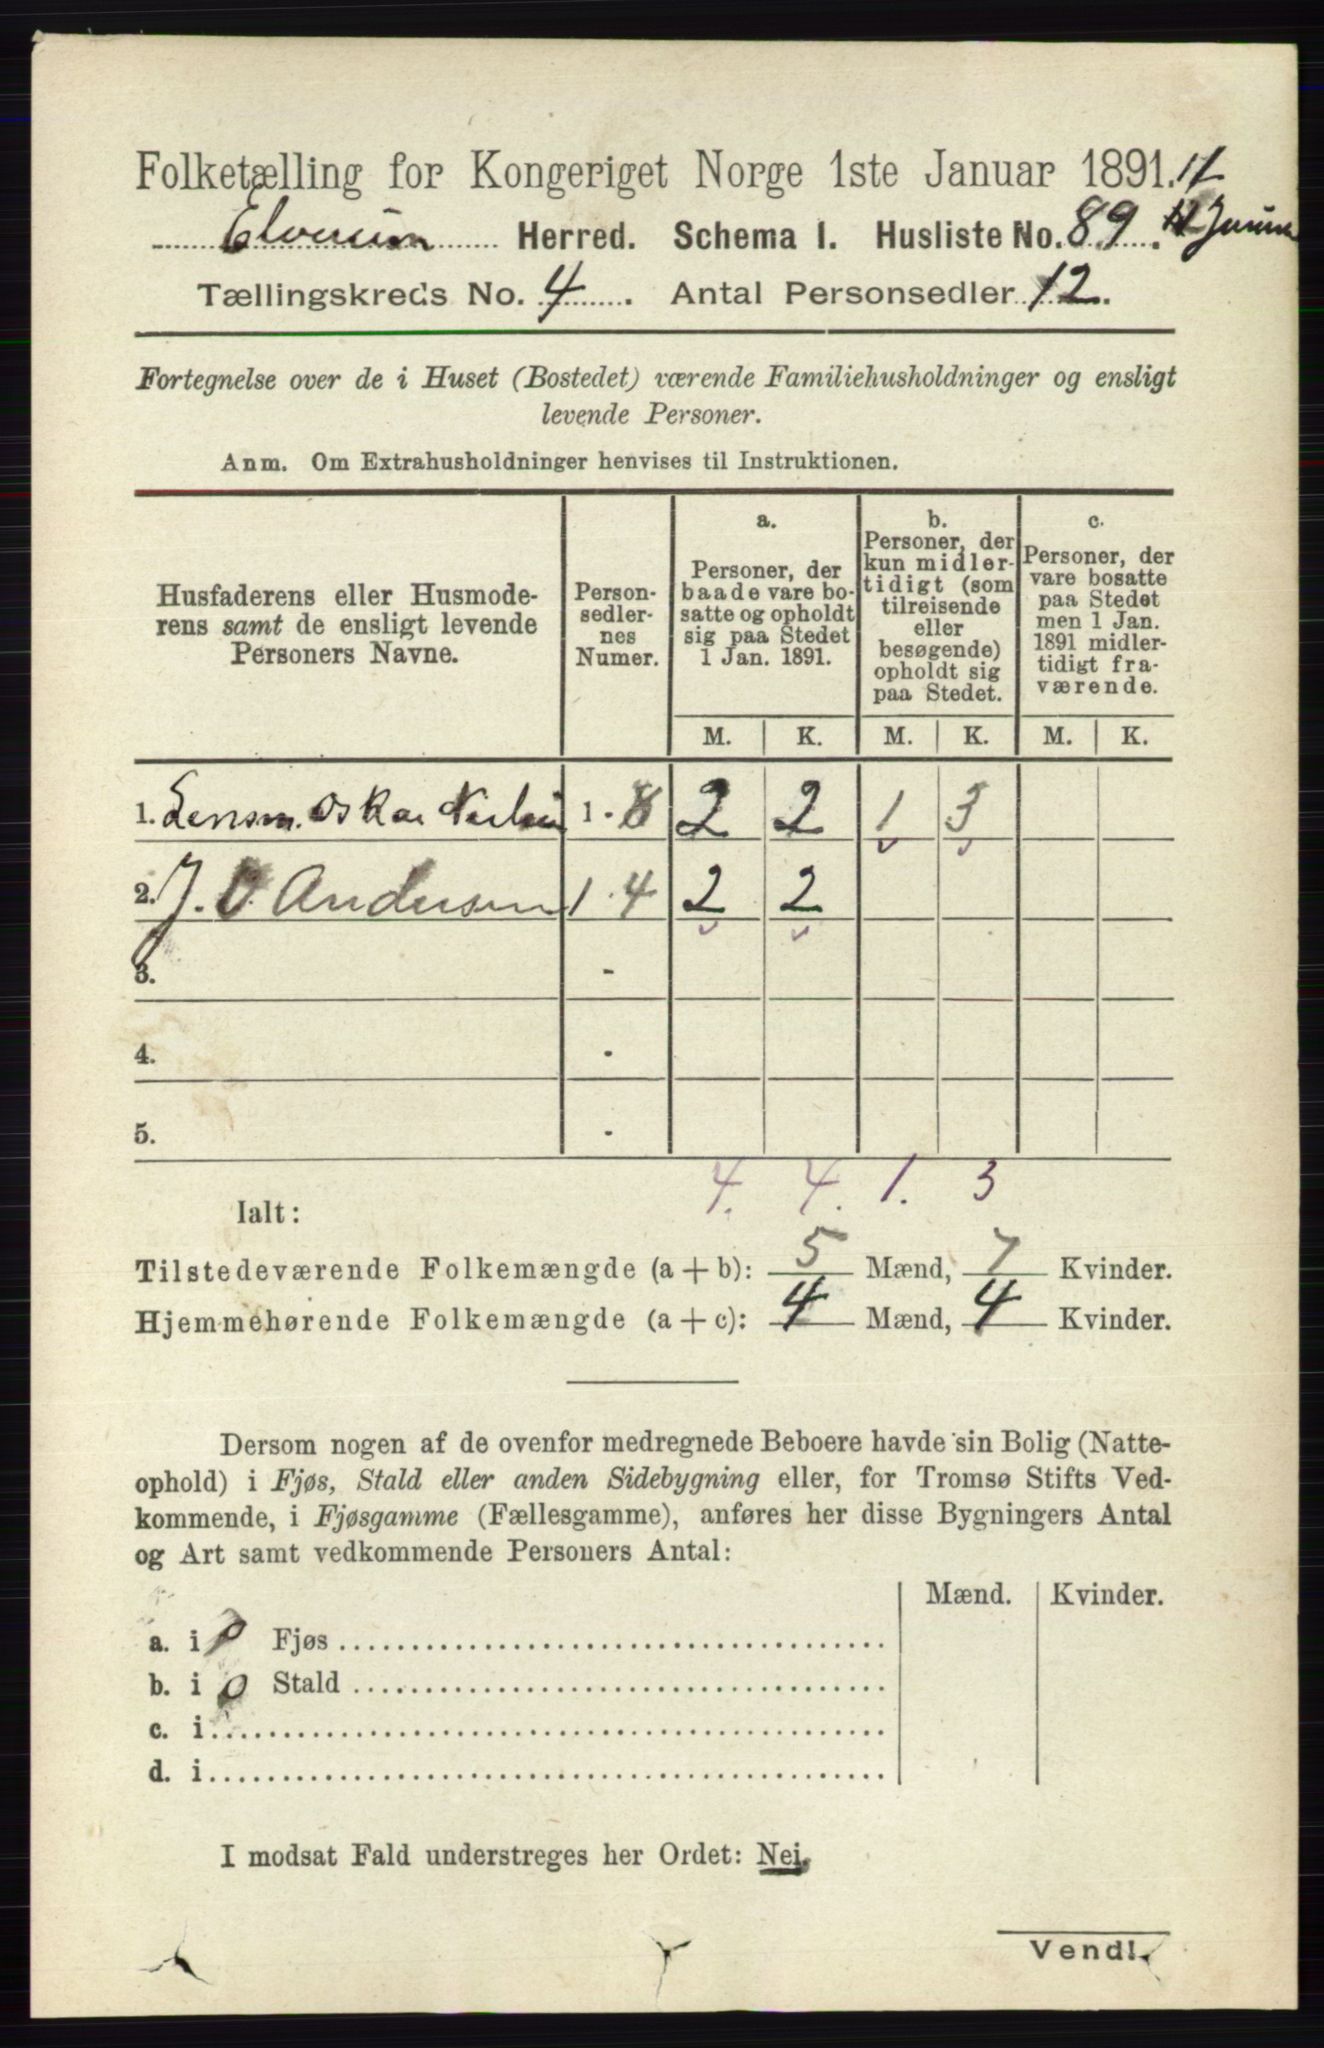 Folketælling for Kongeriget Norge 1ste Januar 1891. 11
Elverum Herred. Schema 1. Husliste No. 89.
Tællingskreds No. 4. Antal Personsedler 12.
Fortegnelse over de i Huset (Bostedet) værende Familiehusholdninger og ensligt
levende Personer.
Anm. Om Extrahusholdninger henvises til Instruktionen.
Husfaderens eller Husmode-
rens samt de ensligt levende
Personers Navne.
Person-
sedler-
nes
Numer.
a.
Personer, der
baade vare bo-
satte og opholdt
sig paa Stedet
1 Jan. 1891.
b.
Personer, der
kun midler-
tidigt (som
tilreisende
eller
besøgende)
opholdt sig
paa Stedet.
c.
Personer, der
vare bosatte
paa Stedet
men 1 Jan.
1891 midler-
tidigt fra-
værende.
M. K. M. K. M. K.
1. Lensm. Oskar Nielsen 1 - 8 2 2 1 3
2. J. O. Andersen 1 - 4 2 2
3. -
4. -
5. -
4. 4. 1. 3
Ialt:
Tilstedeværende Folkemængde (a + b): 5 Mænd, 7 Kvinder.
Hjemmehørende Folkemængde (a + c): 4 Mænd, 4 Kvinder.
Dersom nogen af de ovenfor medregnede Beboere havde sin Bolig (Natte-
ophold) i Fjøs, Stald eller anden Sidebygning eller, for Tromsø Stifts Ved-
kommende, i Fjøsgamme (Fællesgamme), anføres her disse Bygningers Antal
og Art samt vedkommende Personers Antal:
Mænd. Kvinder.
a. i 0 Fjøs
b. i 0 Stald
c. i
d. i
I modsat Fald understreges her Ordet: Nei.
Vend!